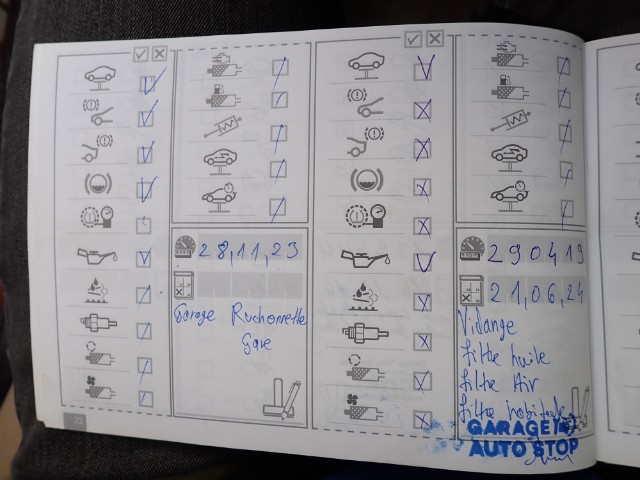 28,11,23
Garage Ruchonnette
Gare
22
290419
21,06,24
Vidange
filtre huile
filtre Air
filtre
GARAGE
AUTO STOP